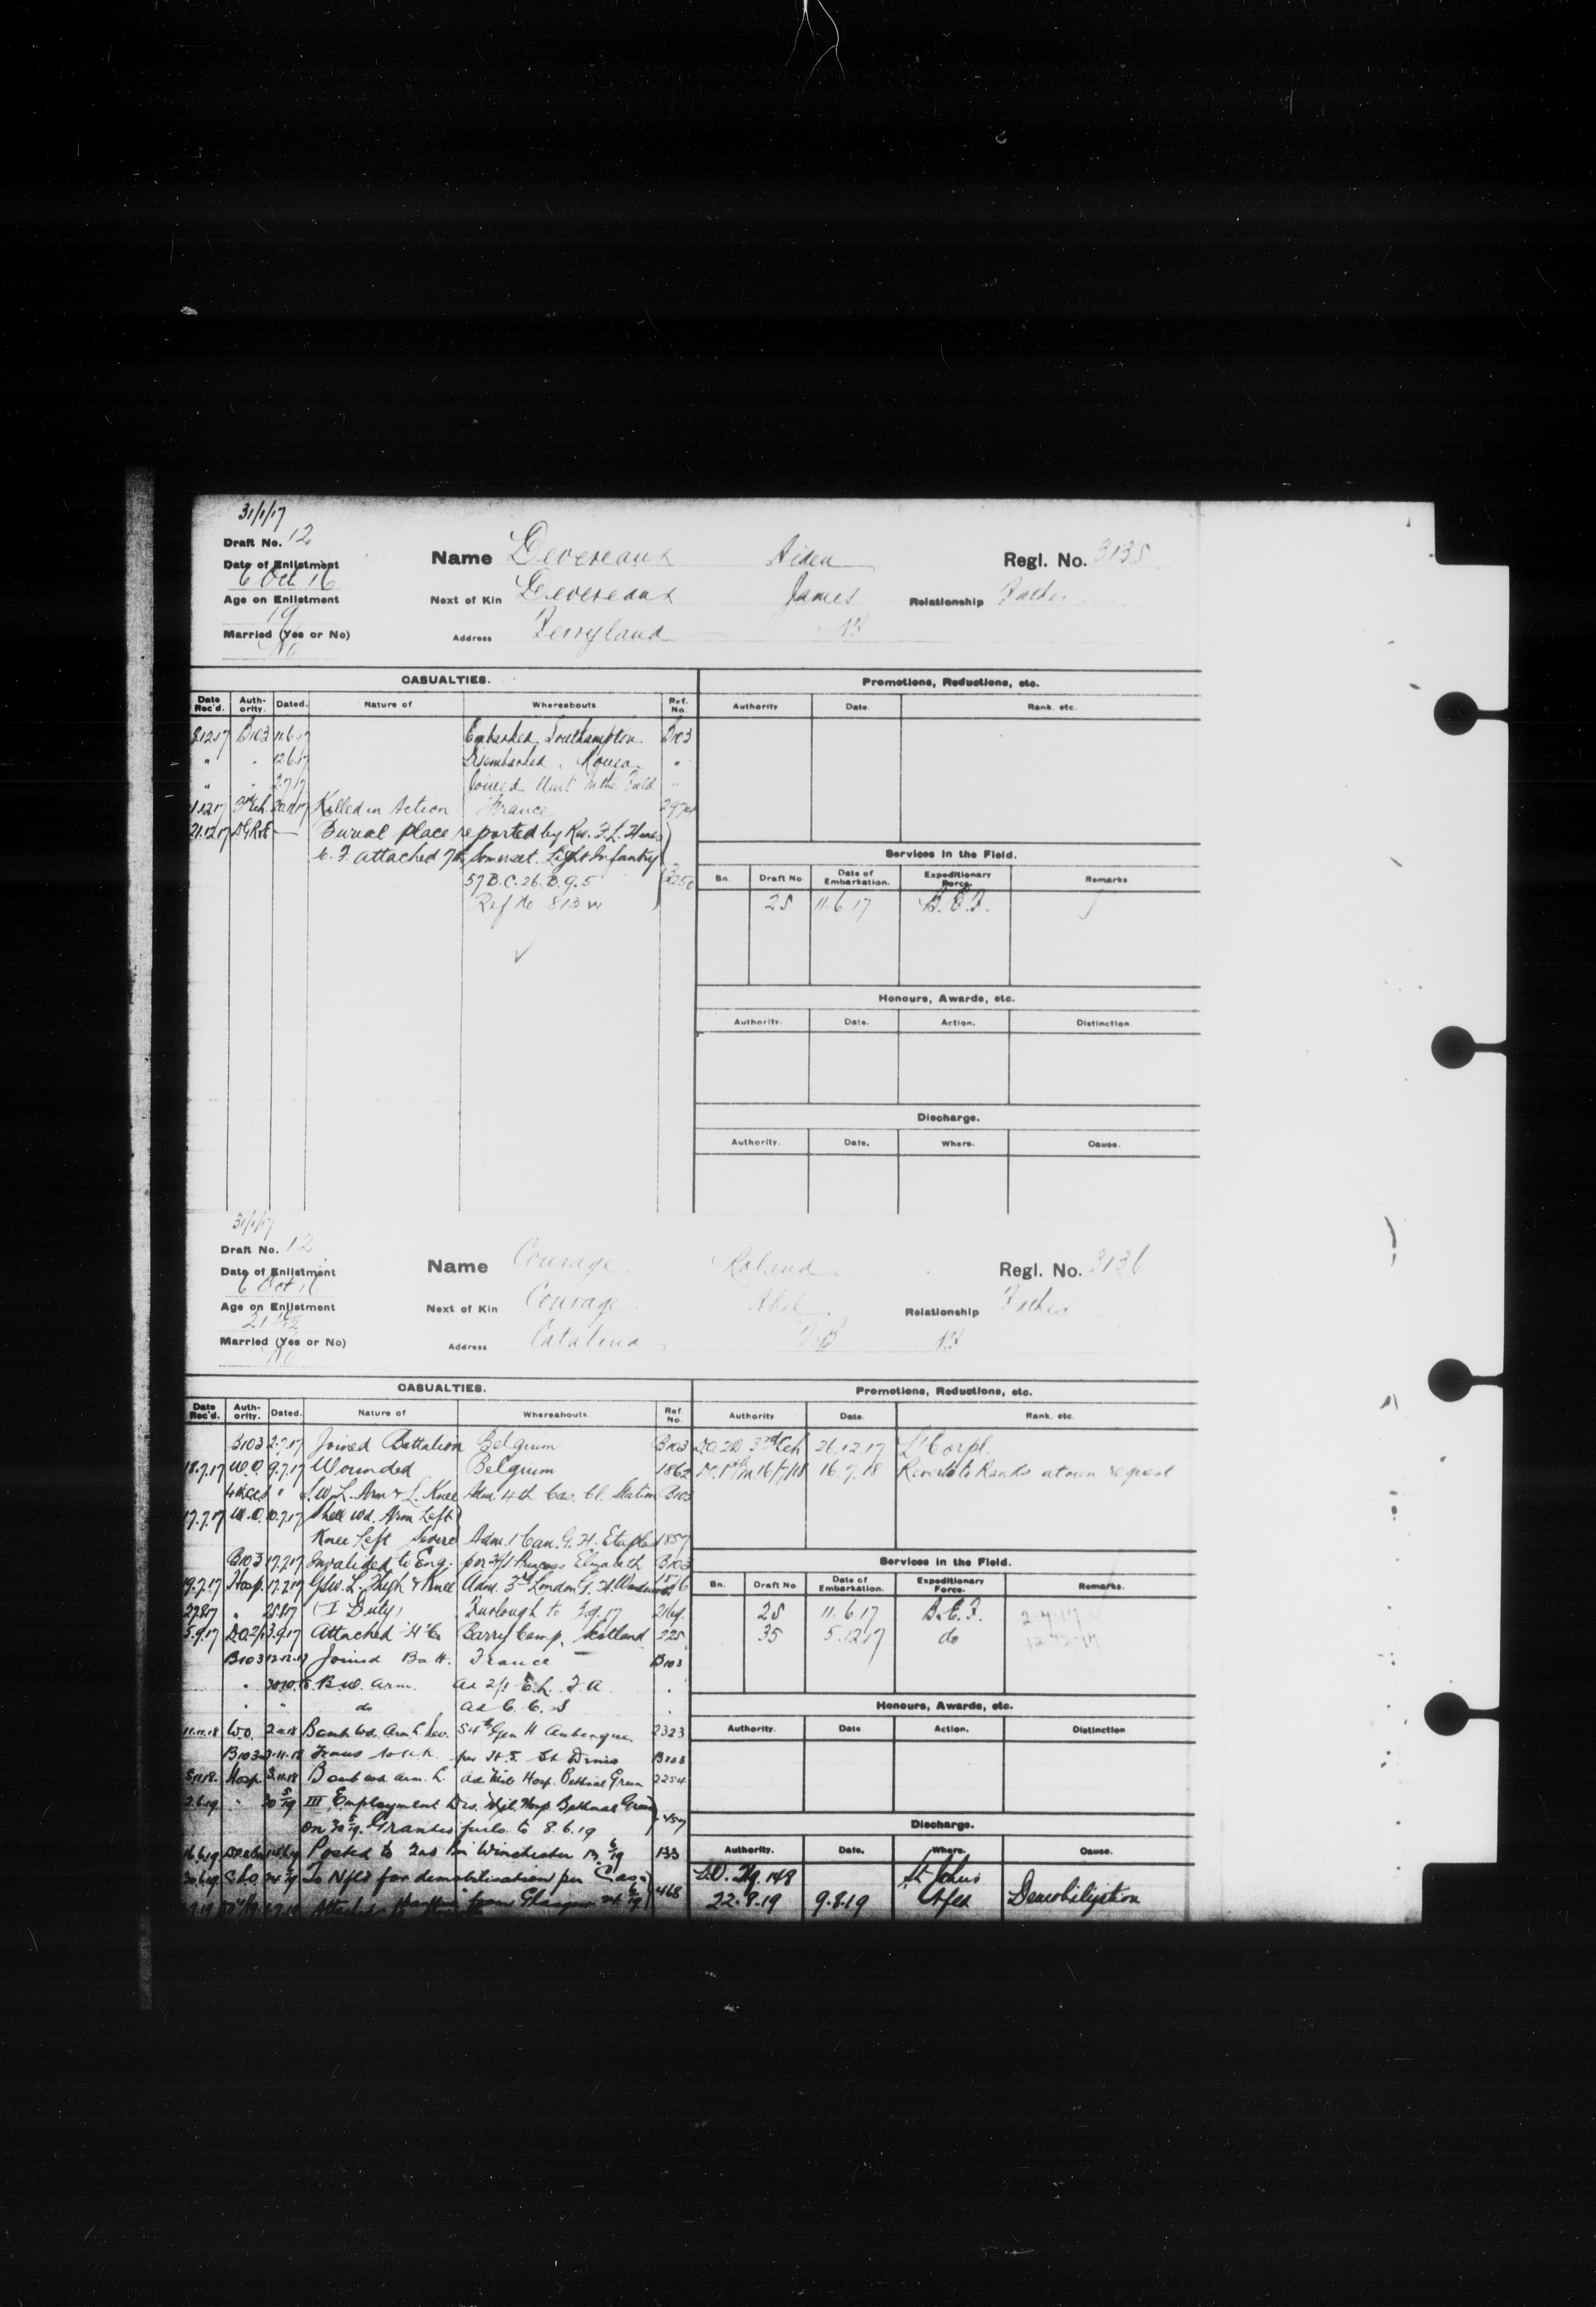 31/1/17
Draft No. 12
Date of Enlistment
6 Oct 16
Age on Enlistment
19
Married (Yes or No)
No
Name Devereaux Aiden Regl. No. 3135
Next of Kin Devereaux James Relationship Father
Address Ferryland
CASUALTIES.
Date Rec'd. Auth-ority. Dated. Nature of Whereabouts Ref. No.
8.12.17 B103 11.6.17 Embarked Southampton B103
" " 12.6.17 Disembarked Rouen "
" " 2.7.17 Joined Unit in the Field "
Killed in Action France
Burial place reported by Rev. F.L.
C.F. attached 7th Somerset Light Infantry
57 B.C. 26. B. 9. 5
Ref No 813 W
Promotions, Reductions, etc.
Authority Date. Rank. etc.
Services in the Field.
Bn. Draft No Date of Embarkation. Expeditionary Force. Remarks
25 11.6.17 B.E.F.
Honours, Awards, etc.
Authority. Date. Action. Distinction
Discharge.
Authority. Date. Where. Cause.
31/1/17
Draft No. 12
Date of Enlistment
6 Oct 16
Age on Enlistment
Married (Yes or No)
No
Name Courage Roland Regl. No. 3136
Next of Kin Courage Abel Relationship Father
Address Catalina TB
CASUALTIES.
Date Rec'd. Auth-ority. Dated. Nature of Whereabouts Ref No.
B103 2.7.17 Joined Battalion Belgium B103
18.7.17 W.O. 9.7.17 Wounded Belgium 1862
4th CCS " S.W. L. Arm & L. Knee Adm. 4th Cas. Cl. Station B103
17.7.17 W.O. 10.7.17 Shell Wd. Arm Left
Knee Left Severe Adm. 1 Can. G.H. Etaples 1857
B103 17.7.17 Invalided to Eng. per H/S Princess Elizabeth B103
19.7.17 Hosp. 17.7.17 GSW. L. Thigh & Knee Adm. 3rd London G.H. Wandsworth
27.8.17 " 25.8.17 (I Duty) Furlough to 3.9.17
5.9.17 3.9.17 Attached H Co Barry Camp, Scotland 225
B103 12.12.17 Joined Batt. France B103
B.W. Arm. Ad 2/1 E.L. F.A. "
" " do Ad C.C.S "
11.11.18 W.O. 2.11.18 Bomb Wd. Arm L. Sev. 54th Gen H Aubengue 2323
B103 3.11.18 Trans to U.K. per St. Denis B103
5.11.18. Hosp. 3.11.18 Bomb wd arm. L. Ad Mil. Hosp. Bethnal Green 2254
2.6.19 " 30 5/19 III Employment Dis. Mil. Hosp Bethnal Green
on 30 5/19. Granted furlo. to 8.6.19
Posted to 2nd Bn Winchester 13 6/19 133
To Nfld for demobilisation per 468
Promotions, Reductions, etc.
Authority Date. Rank. etc.
26.12.17 L/Corpl.
16.7.18 Reverts to Ranks at own request
Services in the Field.
Bn. Draft No Date of Embarkation. Expeditionary Force. Remarks.
25 11.6.17 B.E.F. 2-7-17
35 5.12.17 do 12-12-17
Honours, Awards, etc.
Authority. Date Action. Distinction
Discharge.
Authority. Date. Where. Cause.
148 St Johns
22.8.19 9.8.19 Nfld Demobilization